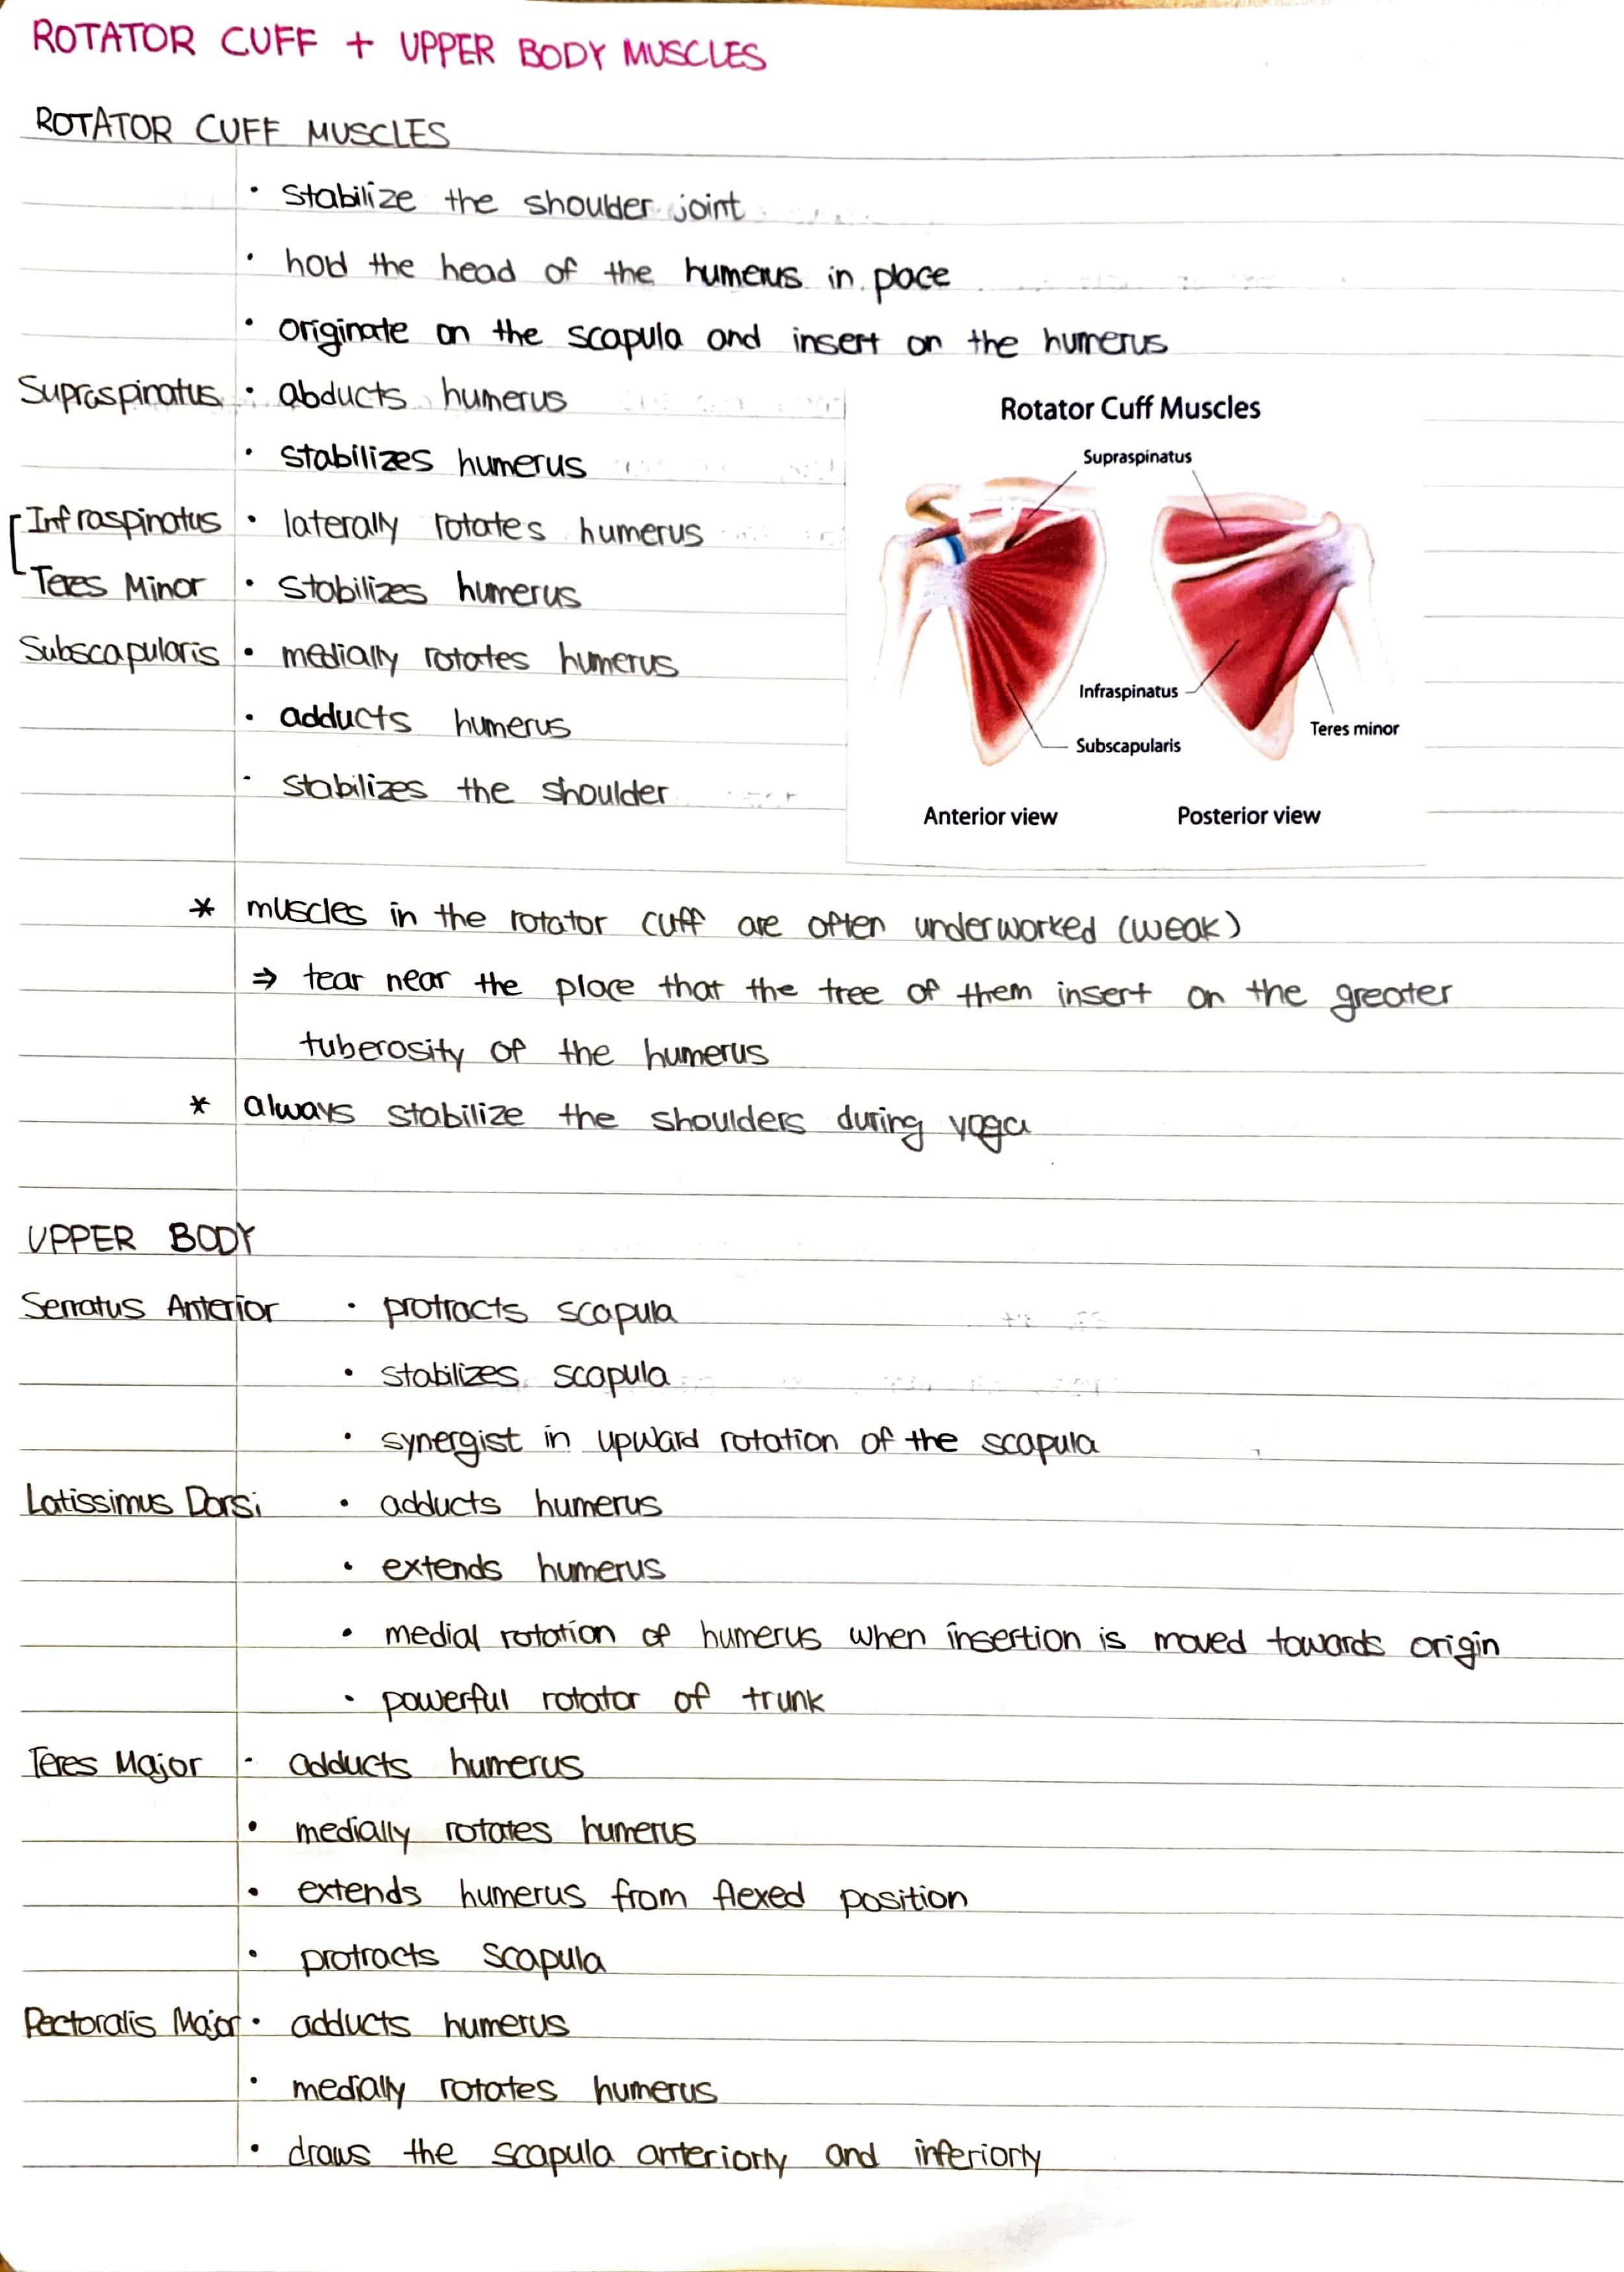 ROTATOR CUFF + UPPER BODY MUSCLES
ROTATOR CUFF MUSCLES
• stabilize the shoulder joint
• hold the head of the humerus in place
• originate on the scapula and insert on the humerus
Supraspinatus • abducts humerus
• stabilizes humerus
Infraspinatus • laterally rotates humerus
Teres Minor • stabilizes humerus
Subscapularis • medially rotates humerus
• adducts humerus
• stabilizes the shoulder
Rotator Cuff Muscles
Supraspinatus
Infraspinatus
Subscapularis
Teres minor
Anterior view
Posterior view
* muscles in the rotator cuff are often underworked (weak)
⇒ tear near the place that the tree of them insert on the greater
tuberosity of the humerus
* always stabilize the shoulders during yoga
UPPER BODY
Serratus Anterior • protracts scapula
• stabilizes scapula
• synergist in upward rotation of the scapula
Latissimus Dorsi • adducts humerus
• extends humerus
• medial rotation of humerus when insertion is moved towards origin
• powerful rotator of trunk
Teres Major • adducts humerus
• medially rotates humerus
• extends humerus from flexed position
• protracts scapula
Pectoralis Major • adducts humerus
• medially rotates humerus
• draws the scapula anteriorly and inferiorly